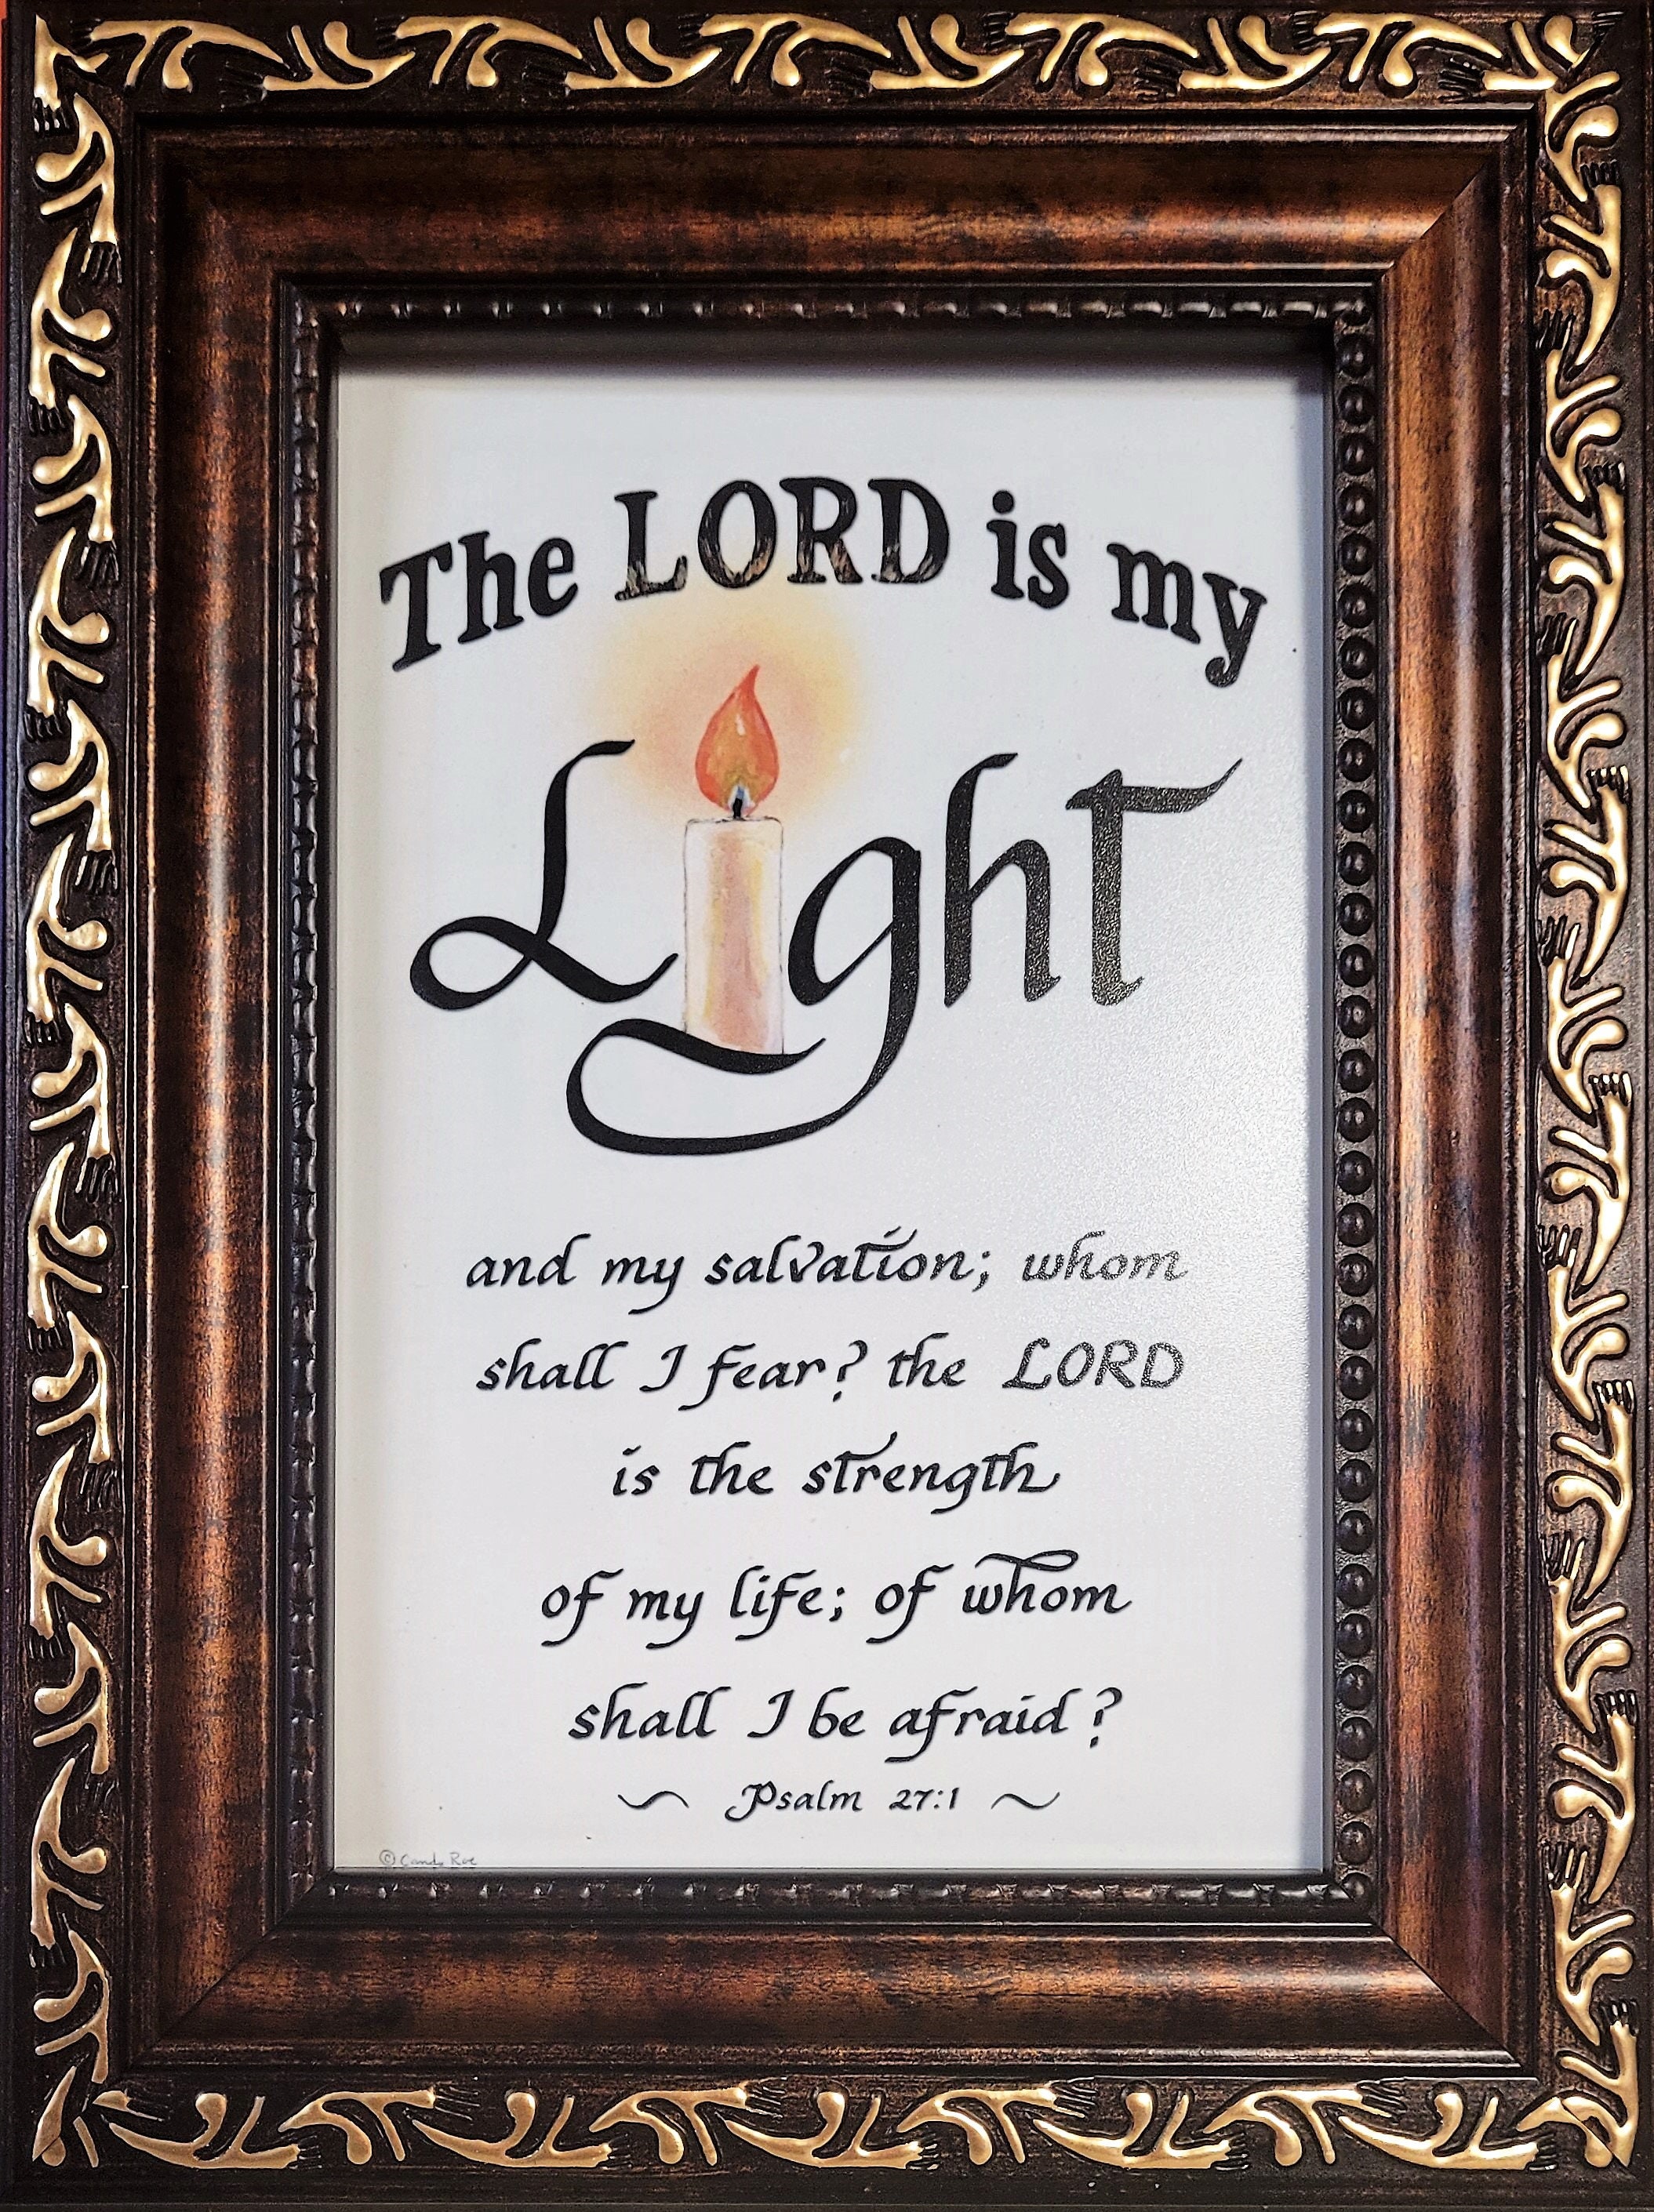 The LORD is my
Light
and my salvation; whom
shall I fear? the LORD
is the strength
of my life; of whom
shall I be afraid?
~ Psalm 27:1 ~
©